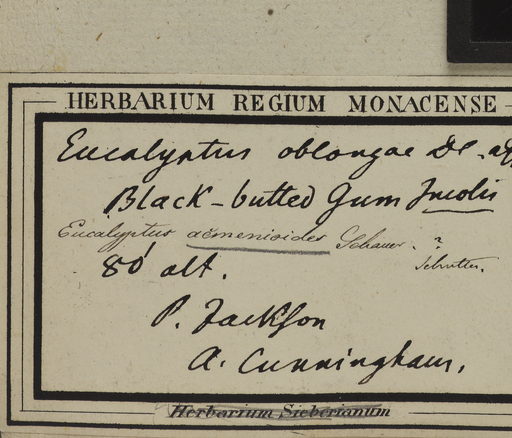 HERBARIUM REGIUM MONACENSE
Eucalyptus oblongae DC. aff
Black-butted Gum Incolis
Eucalyptus acmenioides Schauer. ?
Schrotter.
80' alt.
P. Jackson
A. Cunningham.
Herbarium Sieberianum